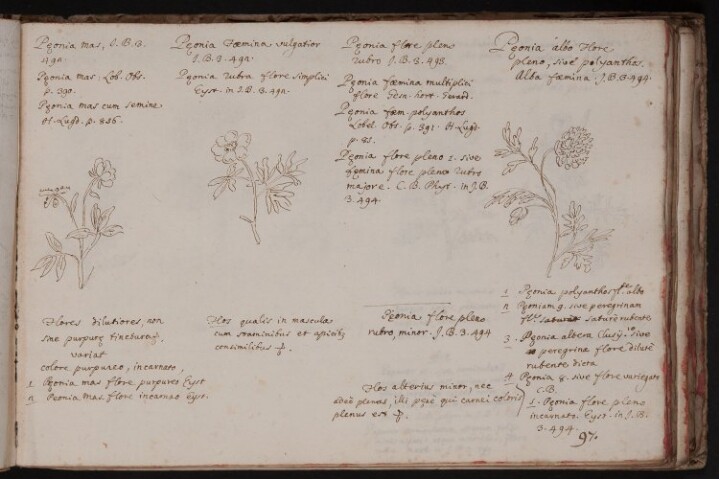 Pęonia mas, J.B.3.
492.
Pęonia mas, Lob. Obs.
p. 390.
Pęonia mas cum semine
H. Lugd. p. 856.
Pęonia Fœmina vulgatior
J.B.3.492.
Pęonia rubra flore simplici
Eyst. in J.B.3.492.
Pęonia flore pleno
rubro J.B.3.493.
Pęonia fœmina multiplici
flore Gesn. hort.
Pęonia fœm. polyanthos
Lobel. Obs. p. 391. H. Lugd.
p. 81.
Pęonia flore pleno 1. sive
fœmina flore pleno rubro
majore. C.B. Phyt. in J.B.
3.494
Pęonia albo flore
pleno, sive polyanthos.
Alba fœmina, J.B.3.494.
Flores dilutiores, non
sine purpurę tinctura,
variat
colore purpureo, incarnato,
1 Pęonia mas flore, purpureo Eyst
2 Peonia mas. flore incarnao Eyst.
Flos qualis in mascula
cum staminibus et apicibus
consimilibus
Pęonia flore pleno
rubro, minor. J.B.3.494
Flos alterius minor, nec
adeò plenus, illi pęnè qui carnei coloris
plenus est
1 Pęonia polyanthos flo. albo
2 Pęoniam 9. sive peregrinam
saturè rubente
3. Pęonia altera Clusij. sive
peregrina flore dilutè
rubente dicta
4 Pęonia 8. sive flore variegato
C.B.
5. Pęonia flore pleno
incarnato. Eyst. in J.B.
3.494.
97.